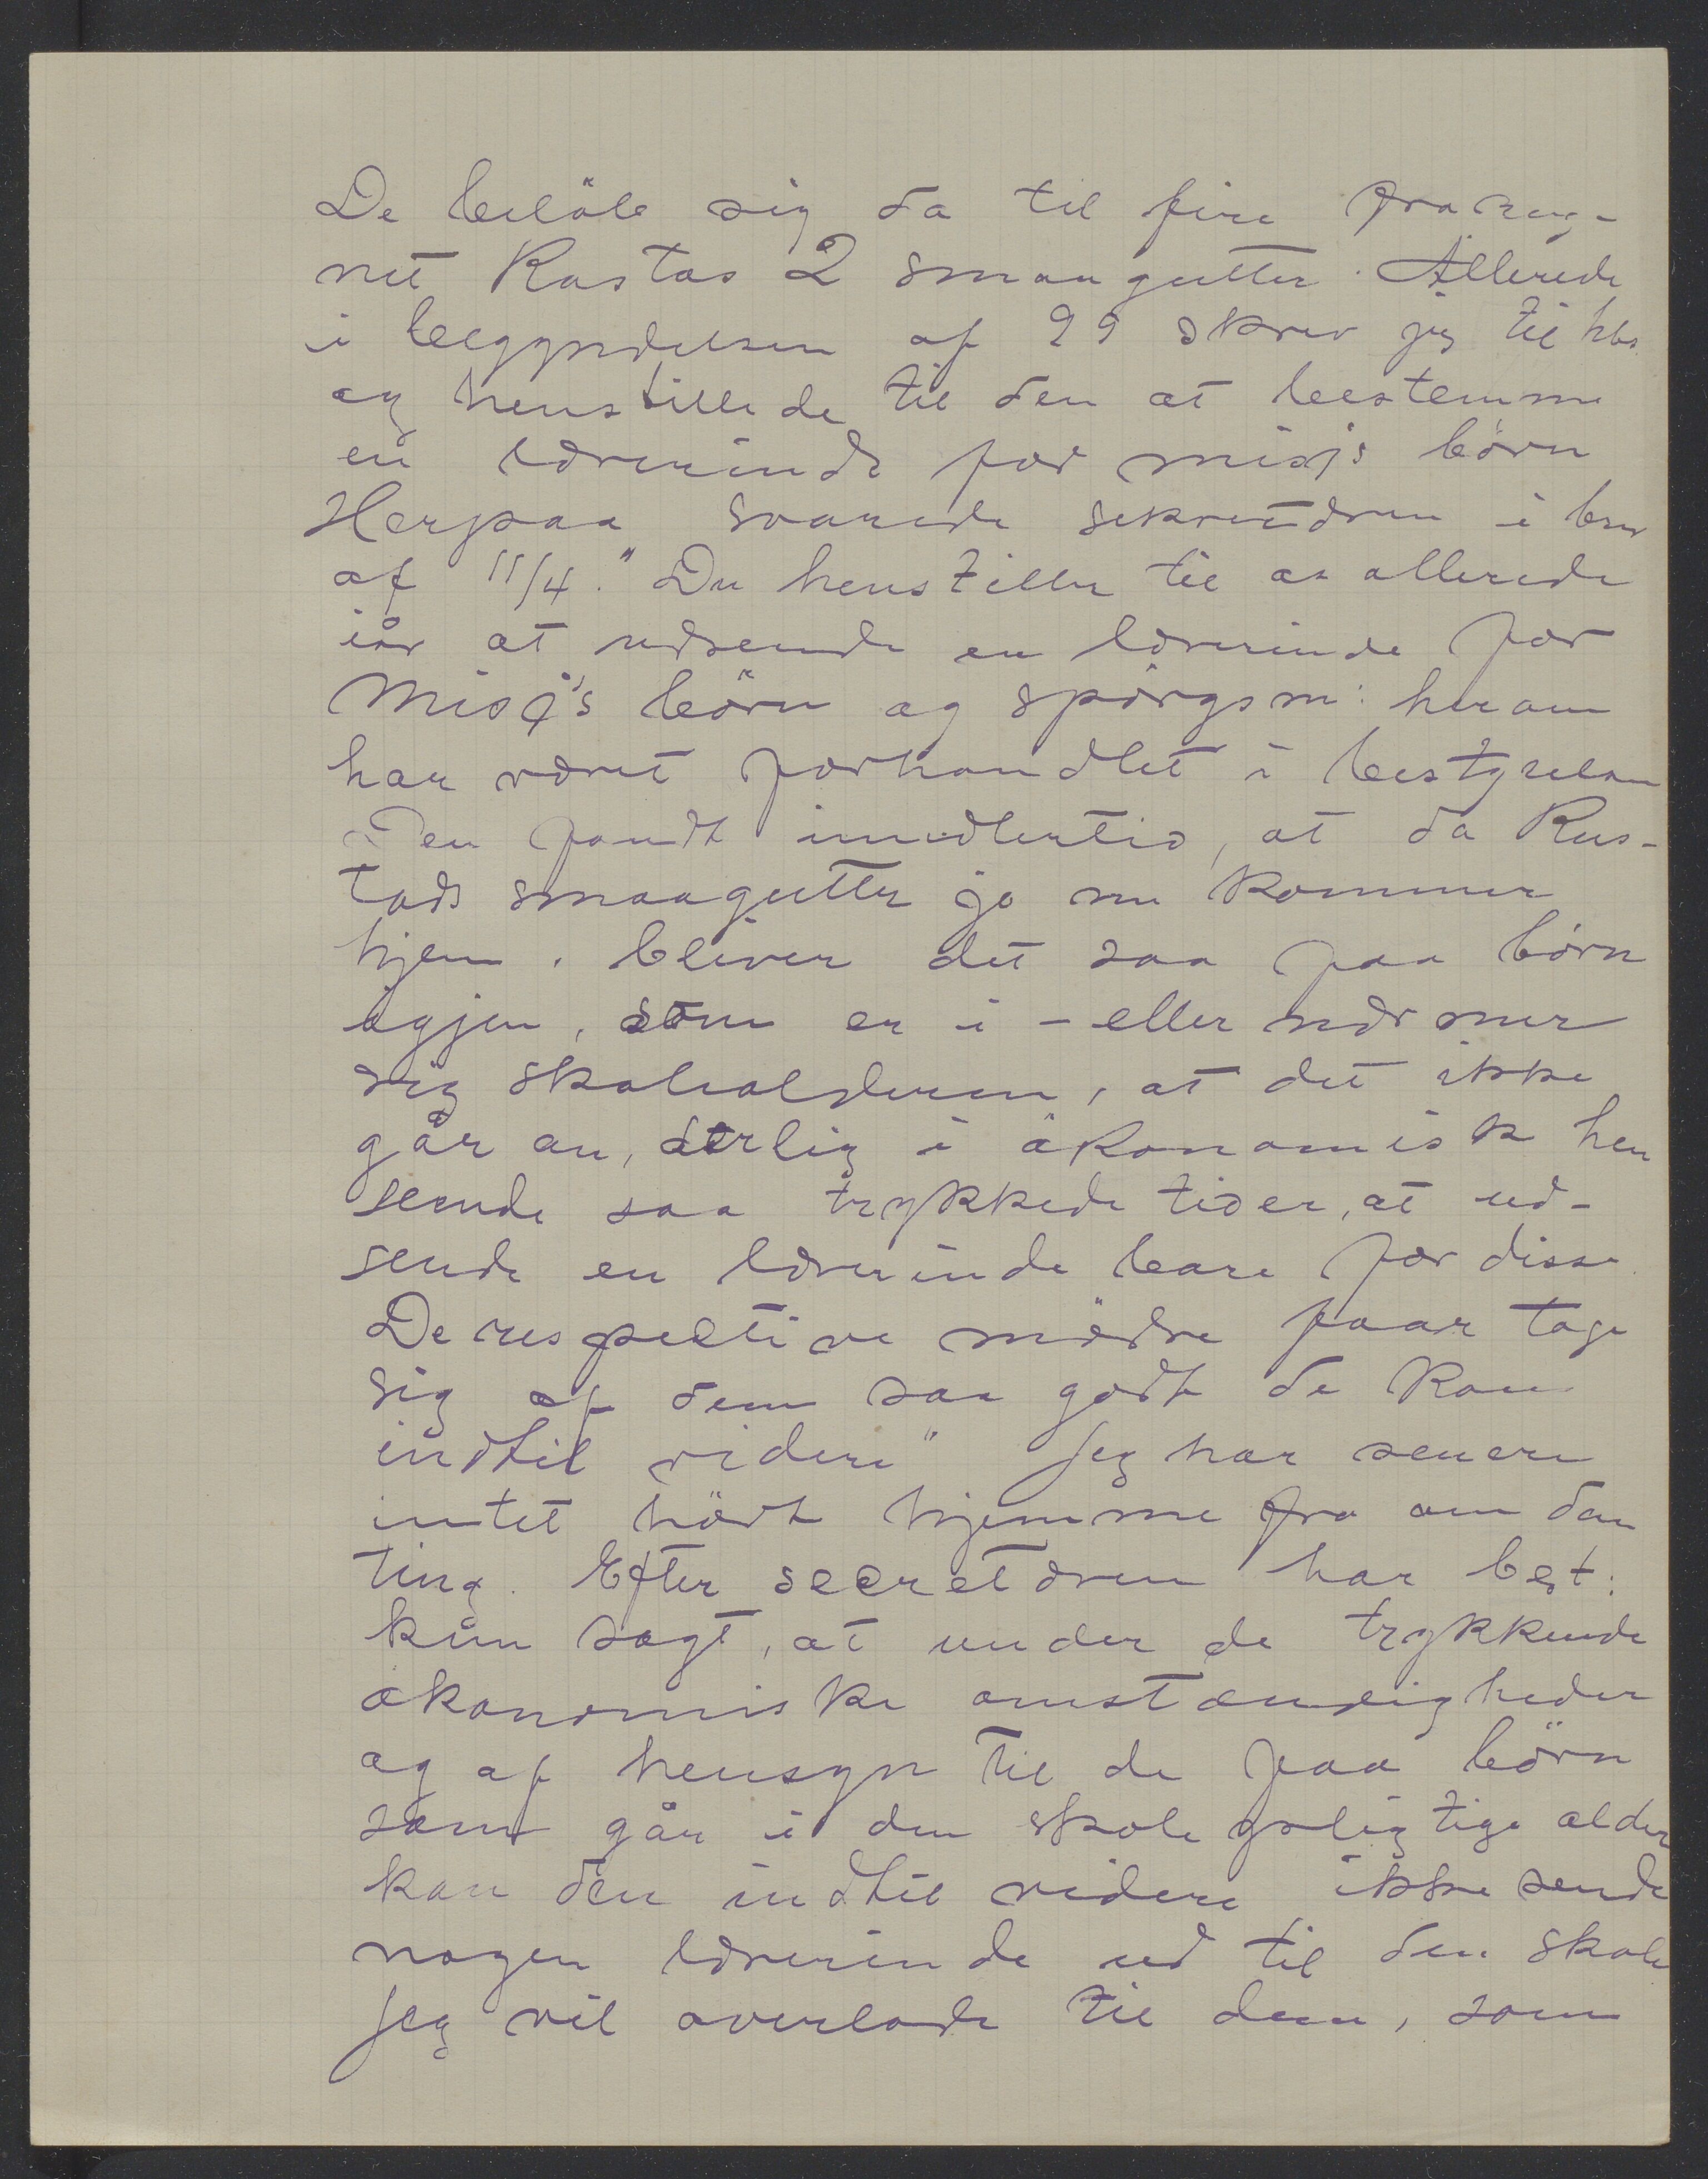 De beløb sig da til fire fraregnet
net Rostas 2 smaagutter. Allerede
i begyndelsen af 99 skrev jeg til hbs
og henstillede til den at bestemme
en lærerinde for misj's børn
Herpaa svarede sekretæren i brev
af 11/4. "Du henstiller til os allerede
iår at udsende en lærerinde for
Misj's börn og spörgsm: herom
har været forhandlet i bestyrelsen
Den fandt imidlertid, at da Rus-
tads smaagutter jo nu kommer
hjem, bliver det saa faa börn
igjen, som er i - eller nærmer
sig skolealderen, at det ikke
går an, særlig i økonomisk hen
seende saa trykkede tider, at ud-
sende en lærerinde bare for disse
De respective mødre faar tage
sig af dem saa godt de kan
indtil videre" Jeg har senere
intet hört hjemme fra om den
ting. Efter secretæren har best:
kun sagt, at under de trykkende
økonomiske omstændigheder
og af hensyn til de faa børn
som går i den skolepligtige alder
kan den indtil videre ikke sende
nogen lærerinde ud til den skole
Jeg vil overlade til dem, som